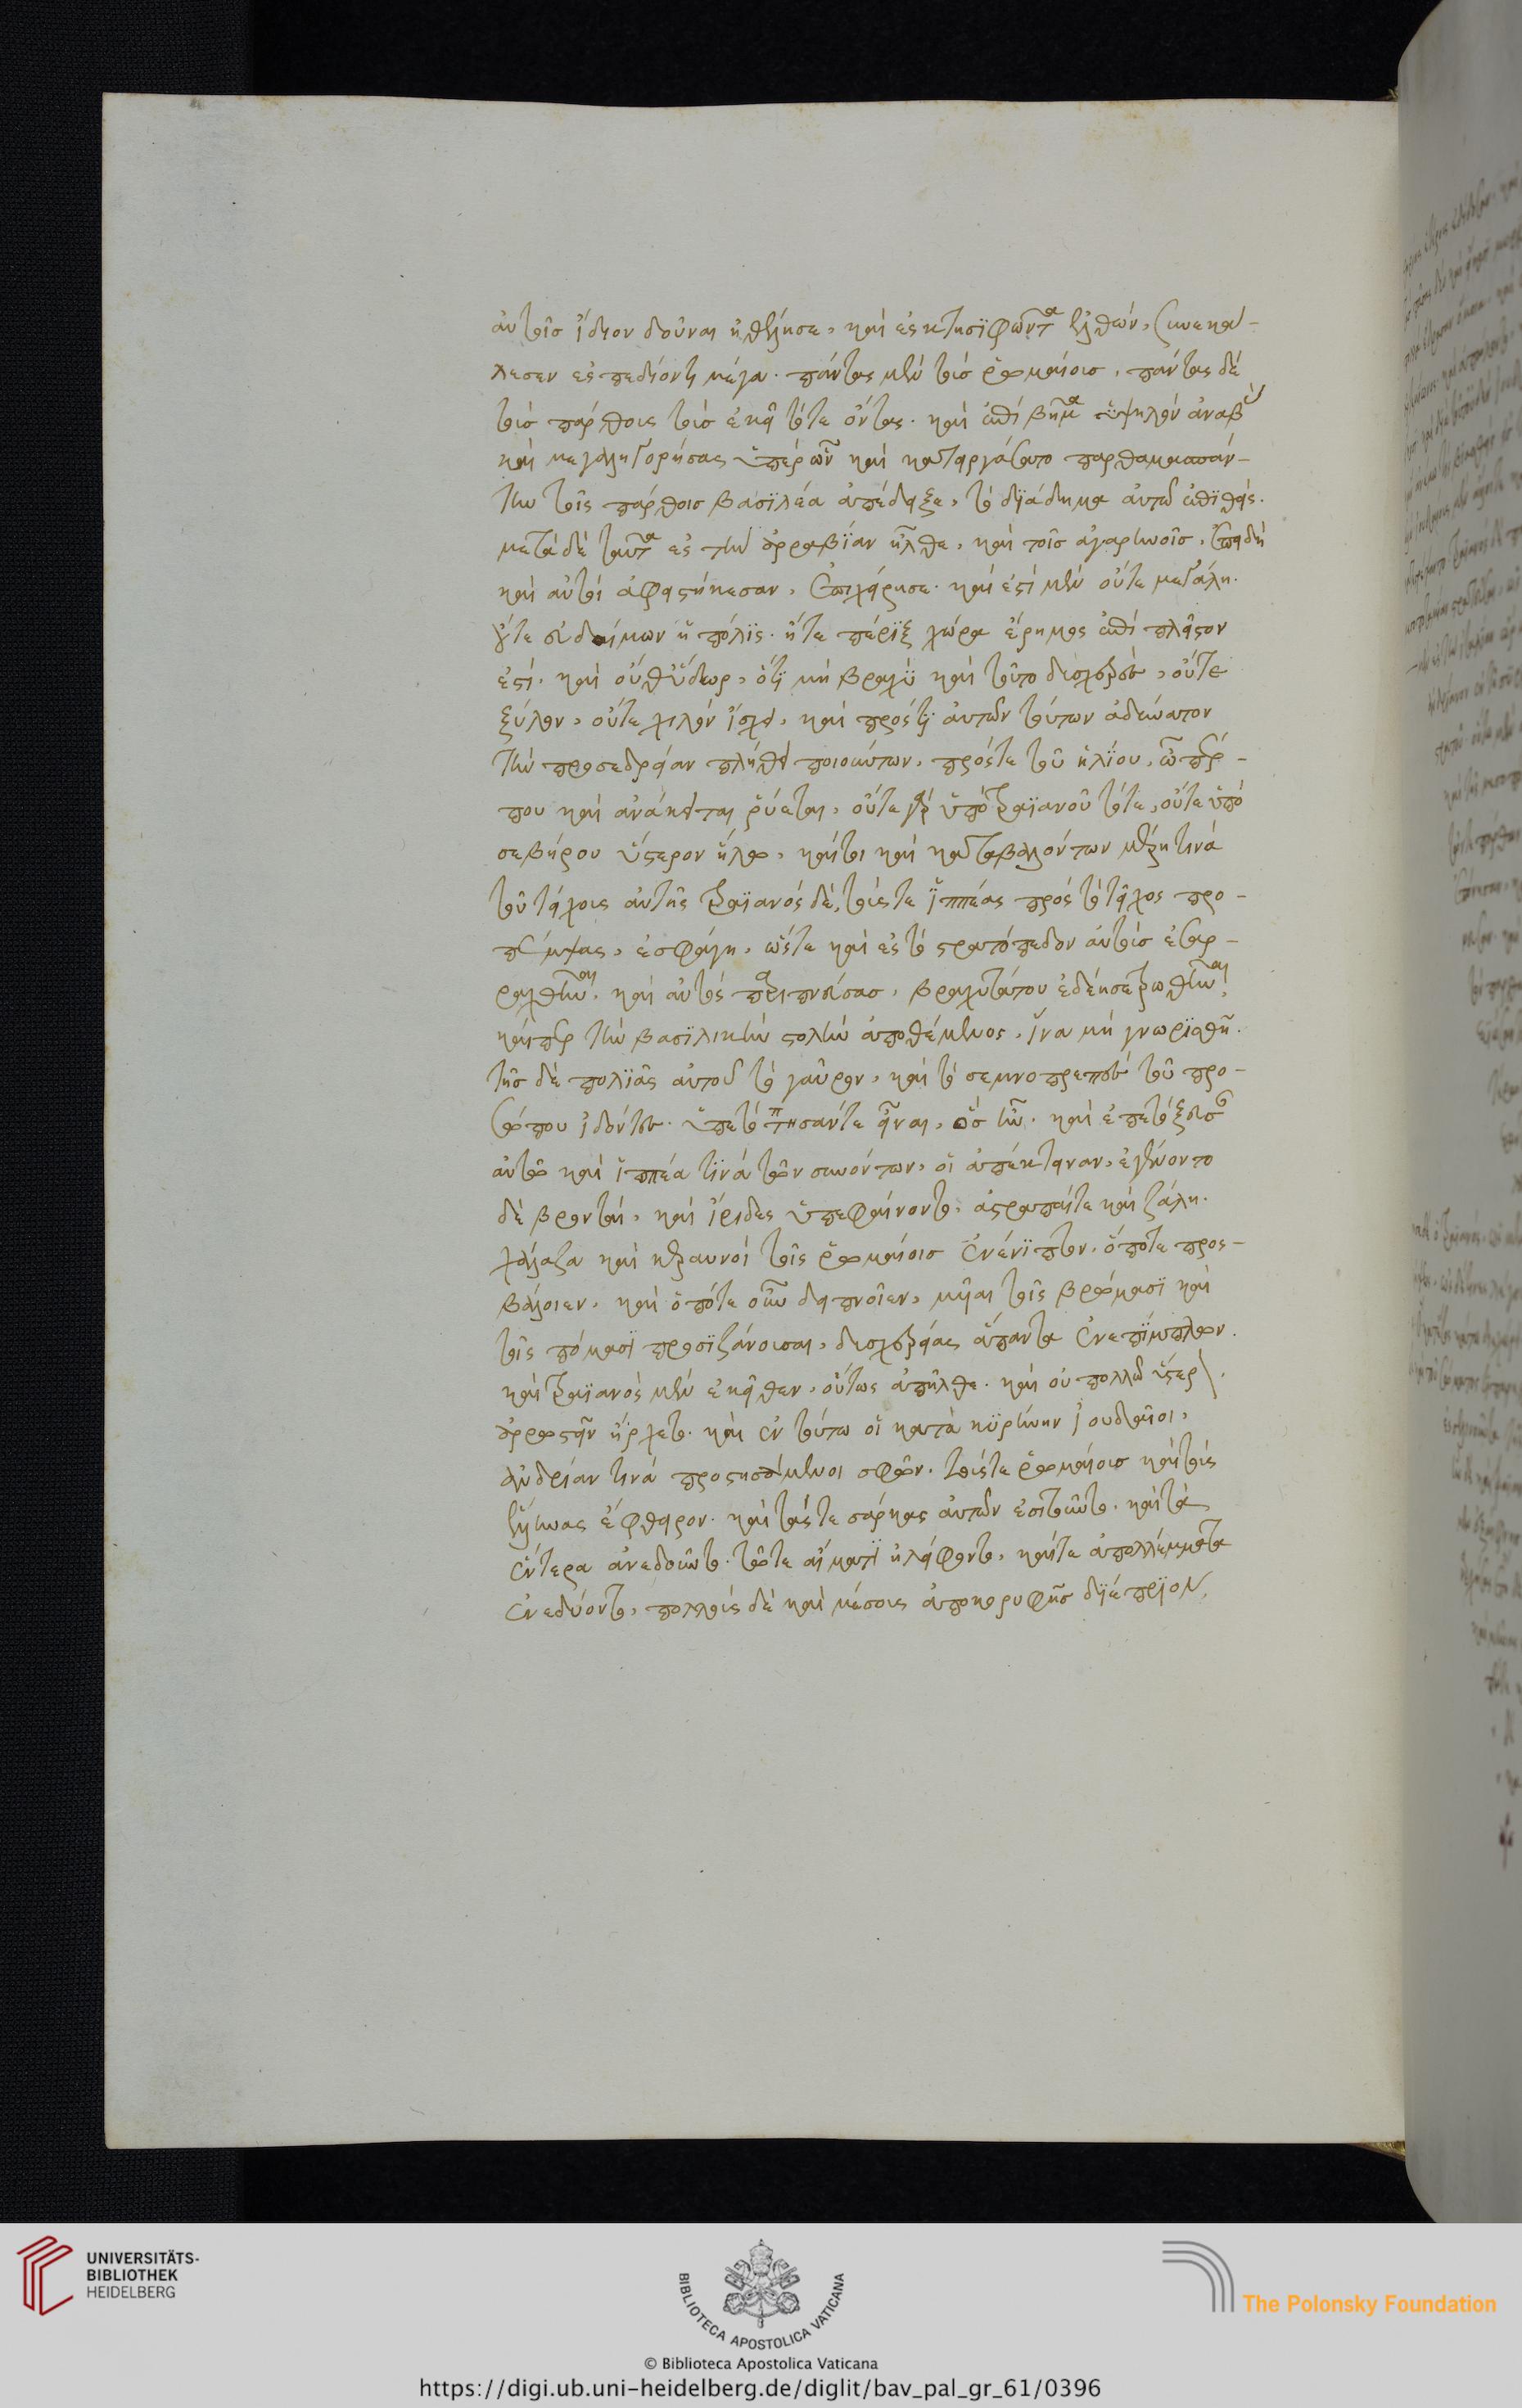 αὐτοῖς ἴδιον δοῦναι ἠθέλησε, καὶ ἐς κτησϊφῶντα ἐλθών, συνεκά-
λεσεν ἐς πεδίον τι μέγα. πάντας μὲν τοὺσ ῥωμαίουσ, πάντας δὲ
τοὺσ πάρθους τοὺσ ἐκεῖ τότε ὄντας. καὶ ἐπὶ βῆμα ὑψηλὸν ἀναβὰς
καὶ μεγαληγορήσας ὑπὲρ ὧν καὶ κατειργάσατο παρθαμασπά-
την τοῖς πάρθοισ βασϊλέα ἀπέδειξε, τὸ διάδημα αὐτῶ ἐπϊθείς.
μετὰ δὲ ταῦτα ἐς τὴν ἀρραβϊαν ἦλθε, καὶ τοῖσ ἀγαρηνοῖσ, ἐπειδὴ
καὶ αὐτοὶ ἀφεστήκεσαν, ἐπεχείρησε. καὶ ἐστὶ μὲν οὔτε μεγάλη.
οὔτε εὐδαίμων ἡ πόλϊς. ἥ τε πέρϊξ χώρα ἔρημος ἐπὶ πλεῖστον
ἐστί. καὶ οὔθ᾽ ὕδωρ, ὅτι μὴ βραχὺ καὶ τοῦτο δυσχερὲς, οὔτε
ξύλον, οὔτε χιλὸν ἴσχει, καὶ πρός τι αὐτῶν τούτων ἀδύνατον
τὴν προσεδρείαν πλήθει ποιούντων, πρός τε τοῦ ἡλίου, ὧπερ
που καὶ ἀνάκειται ῥύεται, οὔτε γὰρ ὑπὸ τραϊανοῦ τότε, οὔτε ὑπὸ
σεβήρου ὕστερον ἥλω, καίτοι καὶ καταβαλόντων μέρη τινὰ
τοῦ τείχους αὐτῆς τραϊανὸς δὲ, τούς τε ἱππέας πρὸς τὸ τεῖχος προ-
πέμψας, ἐσφάγη, ὥστε καὶ ἐς τὸ στρατόπεδον αὐτοὺσ ἐσαρ-
ραχθῆναι. καὶ αὐτὸς παριππεύσασ, βραχυτάτου ἐδέησε τρωθῆναι,
καίπερ τὴν βασϊλικὴν στολὴν ἀποθέμενος, ἵνα μὴ γνωρϊσθῆ.
τῆσ δὲ πολϊᾶς αὐτοῦ τὸ γαῦρον, καὶ τὸ σεμνοπρεπὲς τοῦ προ-
σώπου ἰδόντες. ὑπετόπησάν τε εἶναι, ὃσ ἦν. καὶ ἐπετόξευσαν
αὐτῶ καὶ ἱππέα τϊνὰ τῶν συνόντων, οἳ ἀπέκτειναν, ἐγίνοντο
δὲ βρονταὶ, καὶ ἴριδες ὑπεφαίνοντο, ἀστραπαί τε καὶ ζάλη.
χάλαζα καὶ κεραυνοὶ τοῖς ῥωμαίοισ ἐνέπϊπτον, ὁπότε προσ-
βάλοιεν, καὶ ὁπότε οὖν δειπνοῖεν, μυῖαι τοῖς βρώμασϊ καὶ
τοῖς πόμασϊ προσϊζάνουσαι, δυσχερείας ἅπαντα ἐνεπϊμπλων.
καὶ τραϊανὸς μὲν ἐκεῖθεν, οὕτως ἀπῆλθε. καὶ οὐ πολλῶ ὕστερον
ἀρρωστεῖν ἤρχετο. καὶ ἐν τούτω οἱ κατὰ κϋρήνην ἰουδαῖοι,
ἀνδρίαν τινὰ προστησάμενοι σφῶν. τούς τε ῥωμαίουσ καὶ τοὺς
ἕλληνας ἔφθειρον. καὶ τάς τε σάρκας αὐτῶν ἐσιτοῦντο. καὶ τὰ
ἔντερα ἀνεδοῦντο. τῶ τε αἵματϊ ἠλείφοντο, καί τε ἀπολλέμματα
ἐνεδύοντο, πολλοὺς δὲ καὶ μέσους ἀπὸ κορυφῆσ δϊέπρϊον,
UNIVERSITÄTS-
BIBLIOTHEK
HEIDELBERG
BIBLIOTECA APOSTOLICA VATICANA
The Polonsky Foundation
© Biblioteca Apostolica Vaticana
https://digi.ub.uni-heidelberg.de/diglit/bav_pal_gr_61/0396